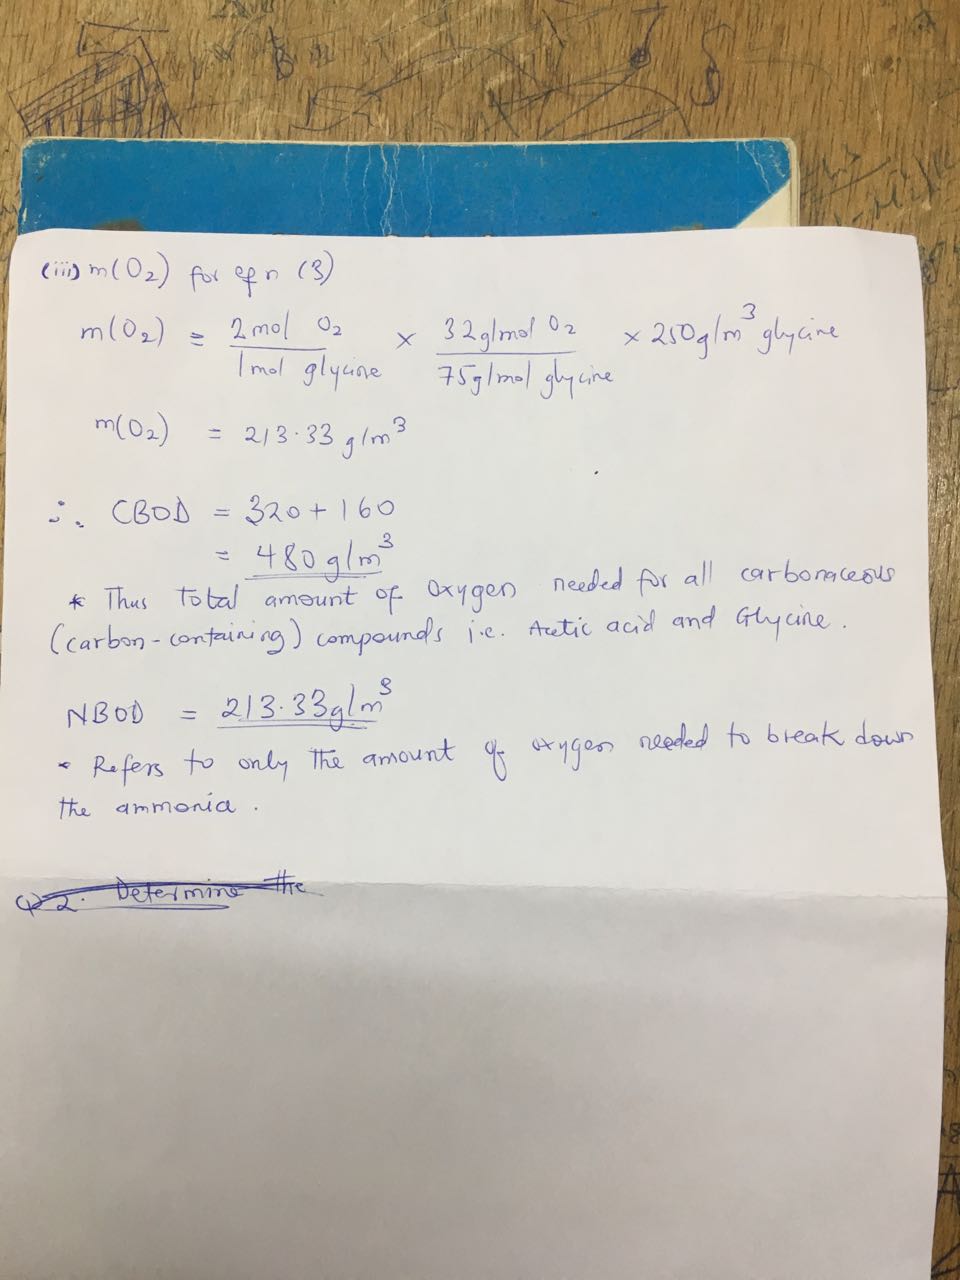 (iii) m(O₂) for eqn (3)
m(O₂) = 2 mol O₂ / 1 mol glycine × 32g/mol O₂ / 75g/mol glycine × 250g/m³ glycine
m(O₂) = 213.33 g/m³
∴ CBOD = 320 + 160
= 480 g/m³
* Thus total amount of oxygen needed for all carbonaceous
(carbon-containing) compounds i.e. Acetic acid and Glycine.
NBOD = 213.33g/m³
* Refers to only the amount of oxygen needed to break down
the ammonia.
Q2. Determine the